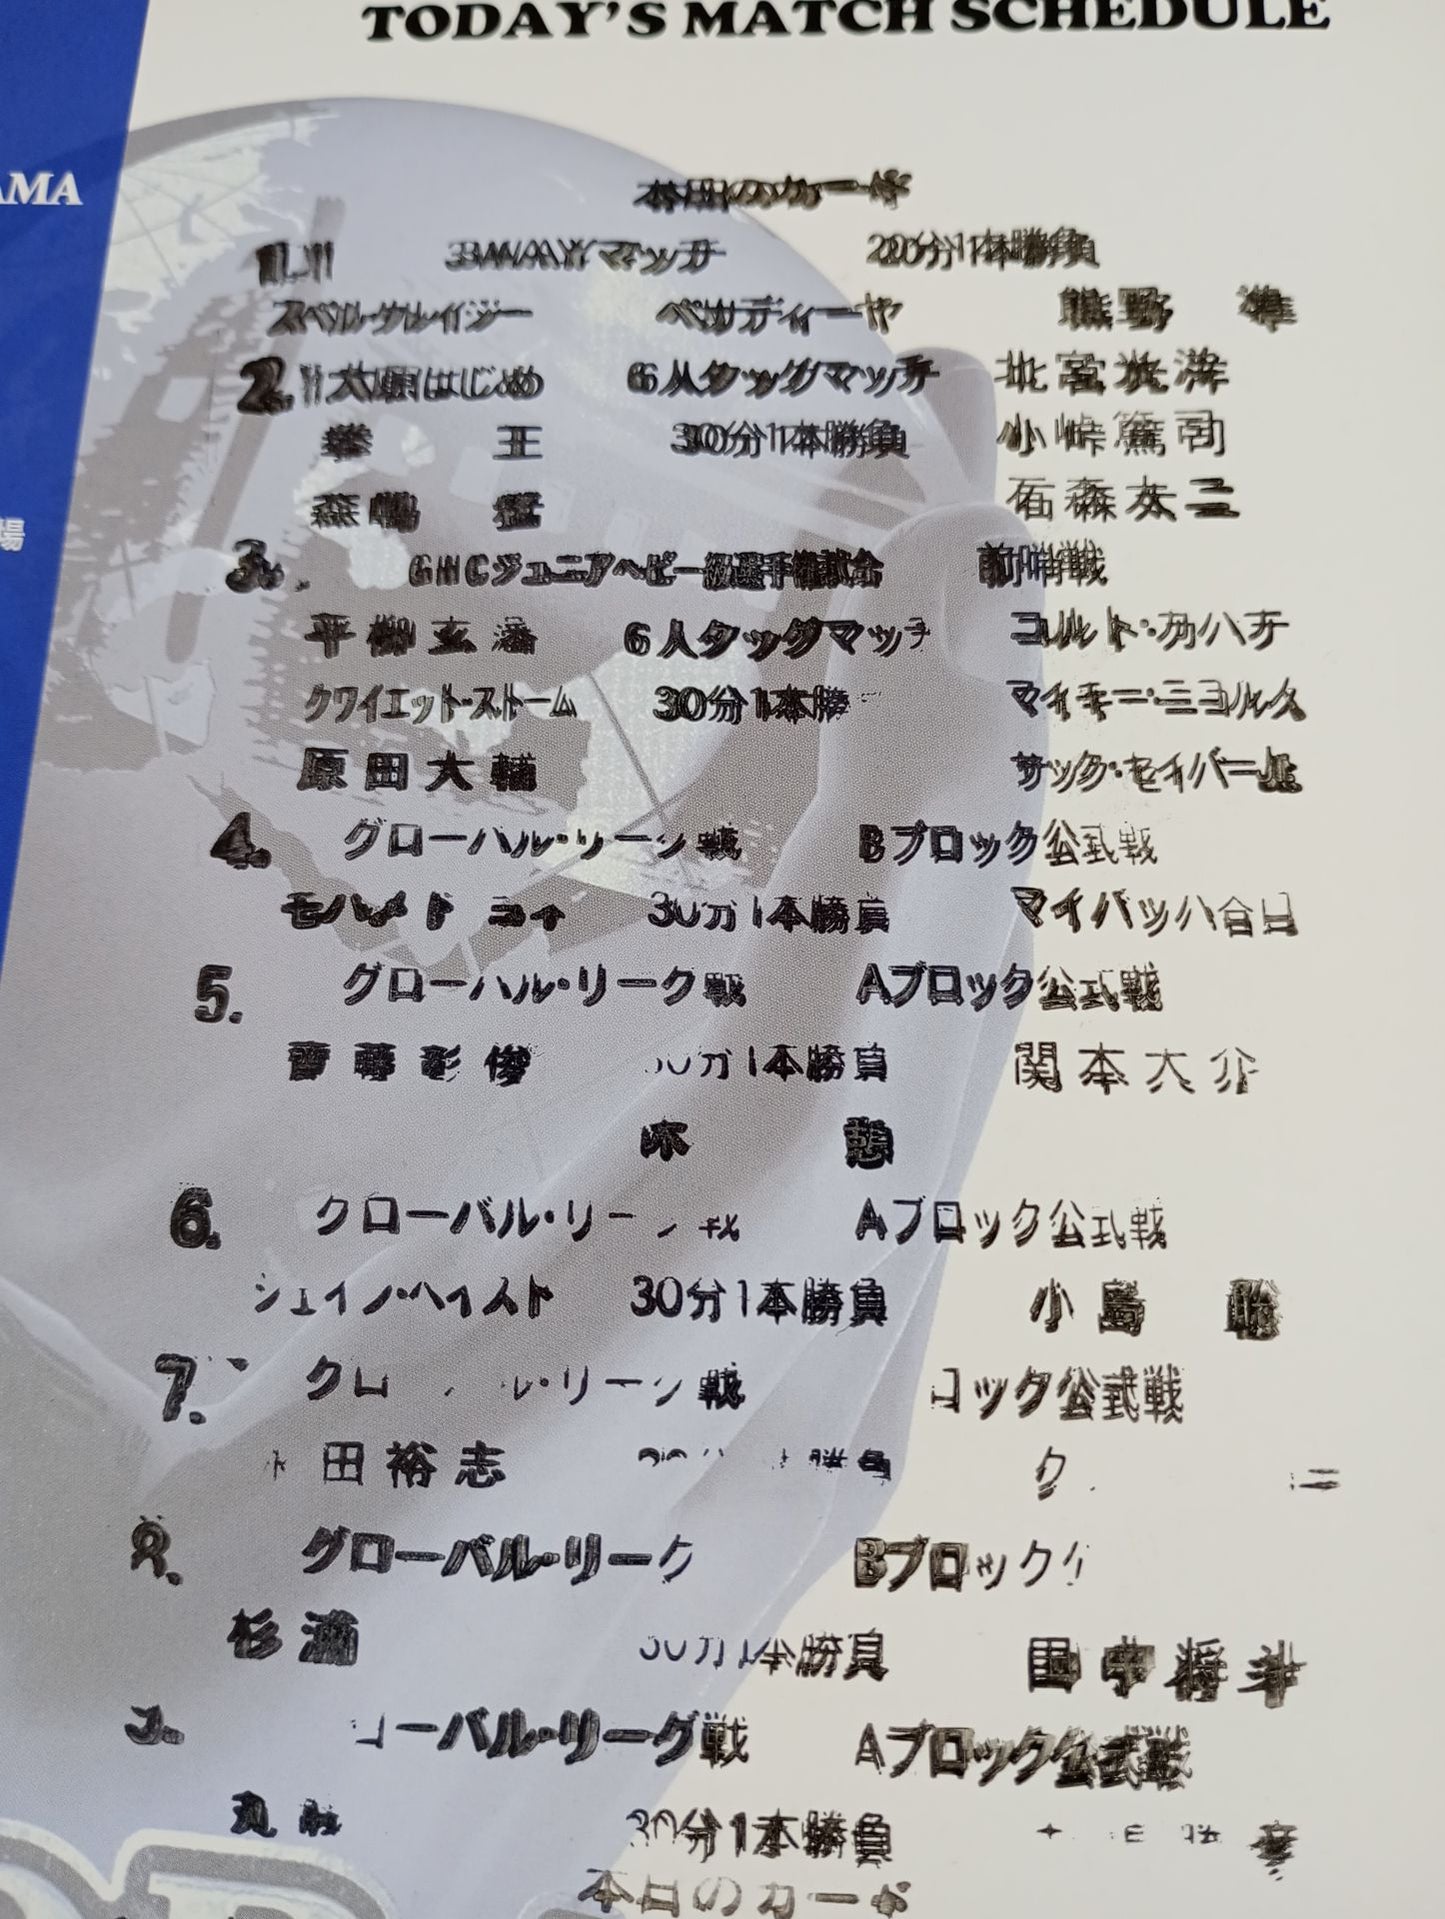 TODAY'S MATCH SCHEDULE
AMA
場
本日のカード
1. 3WAYマッチ 20分1本勝負
スペル・クレイジー ペサディーヤ 熊野 準
2. 大原はじめ 6人タッグマッチ 北宮光洋
拳 王 30分1本勝負 小峠篤司
森嶋 猛 石森太二
3. GHCジュニアヘビー級選手権試合 前哨戦
平柳玄藩 6人タッグマッチ コルト・カバナ
クワイエット・ストーム 30分1本勝 マイキー・ニコルス
原田大輔 ザック・セイバーJr.
4. グローバル・リーグ戦 Bブロック公式戦
モハメド ヨネ 30分1本勝負 マイバッハ谷口
5. グローバル・リーグ戦 Aブロック公式戦
齋藤彰俊 30分1本勝負 関本大介
休 憩
6. グローバル・リーグ戦 Aブロック公式戦
シェイン・ヘイスト 30分1本勝負 小島 聡
7. グローバル・リーグ戦 ロック公式戦
田裕志
8. グローバル・リーグ Bブロック
杉浦 30分1本勝負 田中将斗
ーバル・リーグ戦 Aブロック公式戦
丸 30分1本勝負
本日のカード